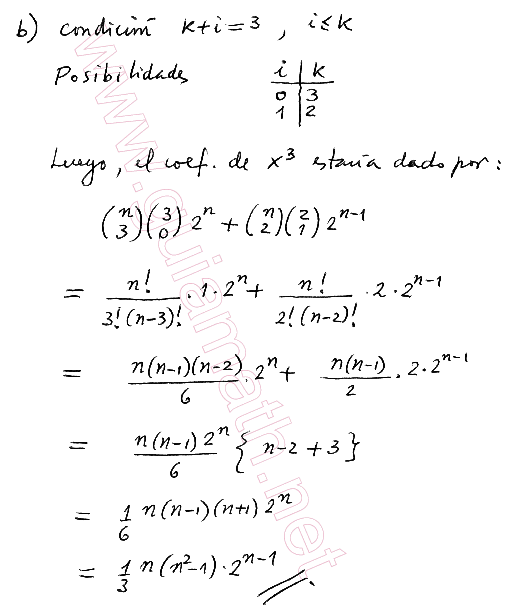 b) condición k+i=3 , i≤k
Posibilidades i | k
0 | 3
1 | 2
Luego, el coef. de x³ estaría dado por:
(n 3)(3 0) 2ⁿ + (n 2)(2 1) 2ⁿ⁻¹
= n!/(3!(n-3)!) · 1 · 2ⁿ + n!/(2!(n-2)!) · 2 · 2ⁿ⁻¹
= n(n-1)(n-2)/6 · 2ⁿ + n(n-1)/2 · 2 · 2ⁿ⁻¹
= n(n-1) 2ⁿ/6 { n-2+3 }
= 1/6 n(n-1)(n+1) 2ⁿ
= 1/3 n(n²-1) · 2ⁿ⁻¹
www.guiamath.net